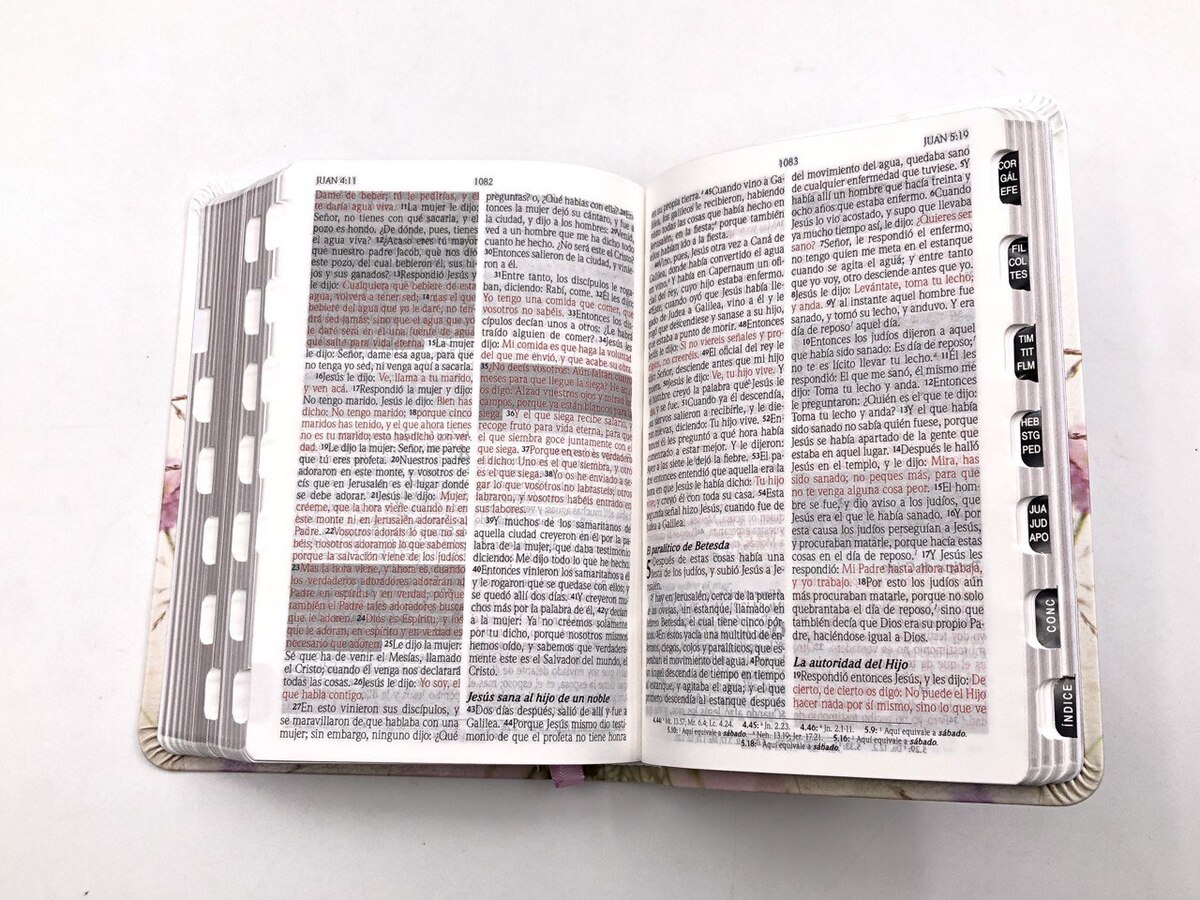 JUAN 4:11
1082
Dame de beber; tú le pedirías, y él
te daría agua viva. 11La mujer le dijo:
Señor, no tienes con qué sacarla, y el
pozo es hondo. ¿De dónde, pues, tienes
el agua viva? 12¿Acaso eres tú mayor
que nuestro padre Jacob, que nos dio
este pozo, del cual bebieron él, sus hi-
jos y sus ganados? 13Respondió Jesús y
le dijo: Cualquiera que bebiere de esta
agua, volverá a tener sed; 14mas el que
bebiere del agua que yo le daré, no ten-
drá sed jamás; sino que el agua que yo
le daré será en él una fuente de agua
que salte para vida eterna. 15La mujer
le dijo: Señor, dame esa agua, para que
no tenga yo sed, ni venga aquí a sacarla.
16Jesús le dijo: Ve, llama a tu marido,
y ven acá. 17Respondió la mujer y dijo:
No tengo marido. Jesús le dijo: Bien has
dicho: No tengo marido; 18porque cinco
maridos has tenido, y el que ahora tienes
no es tu marido; esto has dicho con ver-
dad. 19Le dijo la mujer: Señor, me parece
que tú eres profeta. 20Nuestros padres
adoraron en este monte, y vosotros de-
cís que en Jerusalén es el lugar donde
se debe adorar. 21Jesús le dijo: Mujer,
créeme, que la hora viene cuando ni en
este monte ni en Jerusalén adoraréis al
Padre. 22Vosotros adoráis lo que no sa-
béis; nosotros adoramos lo que sabemos;
porque la salvación viene de los judíos.
23Mas la hora viene, y ahora es, cuando
los verdaderos adoradores adorarán al
Padre en espíritu y en verdad; porque
también el Padre tales adoradores busca
que le adoren. 24Dios es Espíritu; y los
que le adoran, en espíritu y en verdad es
necesario que adoren. 25Le dijo la mujer:
Sé que ha de venir el Mesías, llamado
el Cristo; cuando él venga nos declarará
todas las cosas. 26Jesús le dijo: Yo soy, el
que habla contigo.
27En esto vinieron sus discípulos, y
se maravillaron de que hablaba con una
mujer; sin embargo, ninguno dijo: ¿Qué
preguntas? o, ¿Qué hablas con ella? 28En-
tonces la mujer dejó su cántaro, y fue a
la ciudad, y dijo a los hombres: 29Venid,
ved a un hombre que me ha dicho todo
cuanto he hecho. ¿No será éste el Cristo?
30Entonces salieron de la ciudad, y vinie-
ron a él.
31Entre tanto, los discípulos le roga-
ban, diciendo: Rabí, come. 32Él les dijo:
Yo tengo una comida que comer, que
vosotros no sabéis. 33Entonces los dis-
cípulos decían unos a otros: ¿Le habrá
traído alguien de comer? 34Jesús les
dijo: Mi comida es que haga la voluntad
del que me envió, y que acabe su obra.
35¿No decís vosotros: Aún faltan cuatro
meses para que llegue la siega? He aquí
os digo: Alzad vuestros ojos y mirad los
campos, porque ya están blancos para la
siega. 36Y el que siega recibe salario, y
recoge fruto para vida eterna, para que
el que siembra goce juntamente con el
que siega. 37Porque en esto es verdadero
el dicho: Uno es el que siembra, y otro
es el que siega. 38Yo os he enviado a se-
gar lo que vosotros no labrasteis; otros
labraron, y vosotros habéis entrado en
sus labores.
39Y muchos de los samaritanos de
aquella ciudad creyeron en él por la pa-
labra de la mujer, que daba testimonio
diciendo: Me dijo todo lo que he hecho.
40Entonces vinieron los samaritanos a él
y le rogaron que se quedase con ellos; y
se quedó allí dos días. 41Y creyeron mu-
chos más por la palabra de él, 42y decían
a la mujer: Ya no creemos solamente
por tu dicho, porque nosotros mismos
hemos oído, y sabemos que verdadera-
mente éste es el Salvador del mundo, el
Cristo.
Jesús sana al hijo de un noble
43Dos días después, salió de allí y fue a
Galilea. 44Porque Jesús mismo dio testi-
monio de que el profeta no tiene honra
1083
JUAN 5:19
en su propia tierra. 45Cuando vino a Ga-
los galileos le recibieron, habiendo
todas las cosas que había hecho en
Jerusalén, en la fiesta; porque también
habían ido a la fiesta.
vino, pues, Jesús otra vez a Caná de
Galilea, donde había convertido el agua
Y había en Capernaum un ofi-
del rey, cuyo hijo estaba enfermo.
cuando oyó que Jesús había lle-
de Judea a Galilea, vino a él y le
que descendiese y sanase a su hijo,
que estaba a punto de morir. 48Entonces
le dijo: Si no viereis señales y pro-
no creeréis. 49El oficial del rey le
Señor, desciende antes que mi hijo
Jesús le dijo: Ve, tu hijo vive. Y
hombre creyó la palabra que Jesús le
y se fue. 51Cuando ya él descendía,
siervos salieron a recibirle, y le die-
nuevas, diciendo: Tu hijo vive. 52En-
él les preguntó a qué hora había
comenzado a estar mejor. Y le dijeron:
a las siete le dejó la fiebre. 53El pa-
entonces entendió que aquella era la
en que Jesús le había dicho: Tu hijo
y creyó él con toda su casa. 54Esta
señal hizo Jesús, cuando fue de
Judea a Galilea.
El paralítico de Betesda
5 Después de estas cosas había una
fiesta de los judíos, y subió Jesús a Je-
hay en Jerusalén, cerca de la puerta
ovejas, un estanque, llamado en
Betesda, el cual tiene cinco pór-
En éstos yacía una multitud de en-
ciegos, cojos y paralíticos, que es-
el movimiento del agua. 4Porque
ángel descendía de tiempo en tiempo
estanque, y agitaba el agua; y el que
primero descendía al estanque después
del movimiento del agua, quedaba sano
de cualquier enfermedad que tuviese. 5Y
había allí un hombre que hacía treinta y
ocho años que estaba enfermo. 6Cuando
Jesús lo vio acostado, y supo que llevaba
ya mucho tiempo así, le dijo: ¿Quieres ser
sano? 7Señor, le respondió el enfermo,
no tengo quien me meta en el estanque
cuando se agita el agua; y entre tanto
que yo voy, otro desciende antes que yo.
8Jesús le dijo: Levántate, toma tu lecho,
y anda. 9Y al instante aquel hombre fue
sanado, y tomó su lecho, y anduvo. Y era
día de reposo aquel día.
10Entonces los judíos dijeron a aquel
que había sido sanado: Es día de reposo;
no te es lícito llevar tu lecho. 11Él les
respondió: El que me sanó, él mismo me
dijo: Toma tu lecho y anda. 12Entonces
le preguntaron: ¿Quién es el que te dijo:
Toma tu lecho y anda? 13Y el que había
sido sanado no sabía quién fuese, porque
Jesús se había apartado de la gente que
estaba en aquel lugar. 14Después le halló
Jesús en el templo, y le dijo: Mira, has
sido sanado; no peques más, para que
no te venga alguna cosa peor. 15El hom-
bre se fue, y dio aviso a los judíos, que
Jesús era el que le había sanado. 16Y por
esta causa los judíos perseguían a Jesús,
y procuraban matarle, porque hacía estas
cosas en el día de reposo. 17Y Jesús les
respondió: Mi Padre hasta ahora trabaja,
y yo trabajo. 18Por esto los judíos aún
más procuraban matarle, porque no solo
quebrantaba el día de reposo, sino que
también decía que Dios era su propio Pa-
dre, haciéndose igual a Dios.
La autoridad del Hijo
19Respondió entonces Jesús, y les dijo: De
cierto, de cierto os digo: No puede el Hijo
hacer nada por sí mismo, sino lo que ve
4.44: Mt. 13.57; Mr. 6.4; Lc. 4.24. 4.45: Jn. 2.23. 4.46: Jn. 2.1-11. 5.9: Aquí equivale a sábado.
5.10: Aquí equivale a sábado. Neh. 13.19; Jer. 17.21. 5.16: Aquí equivale a sábado.
5.18: Aquí equivale a sábado.
COR
GÁL
EFE
FIL
COL
TES
TIM
TIT
FLM
HEB
STG
PED
JUA
JUD
APO
CONC
ÍNDICE